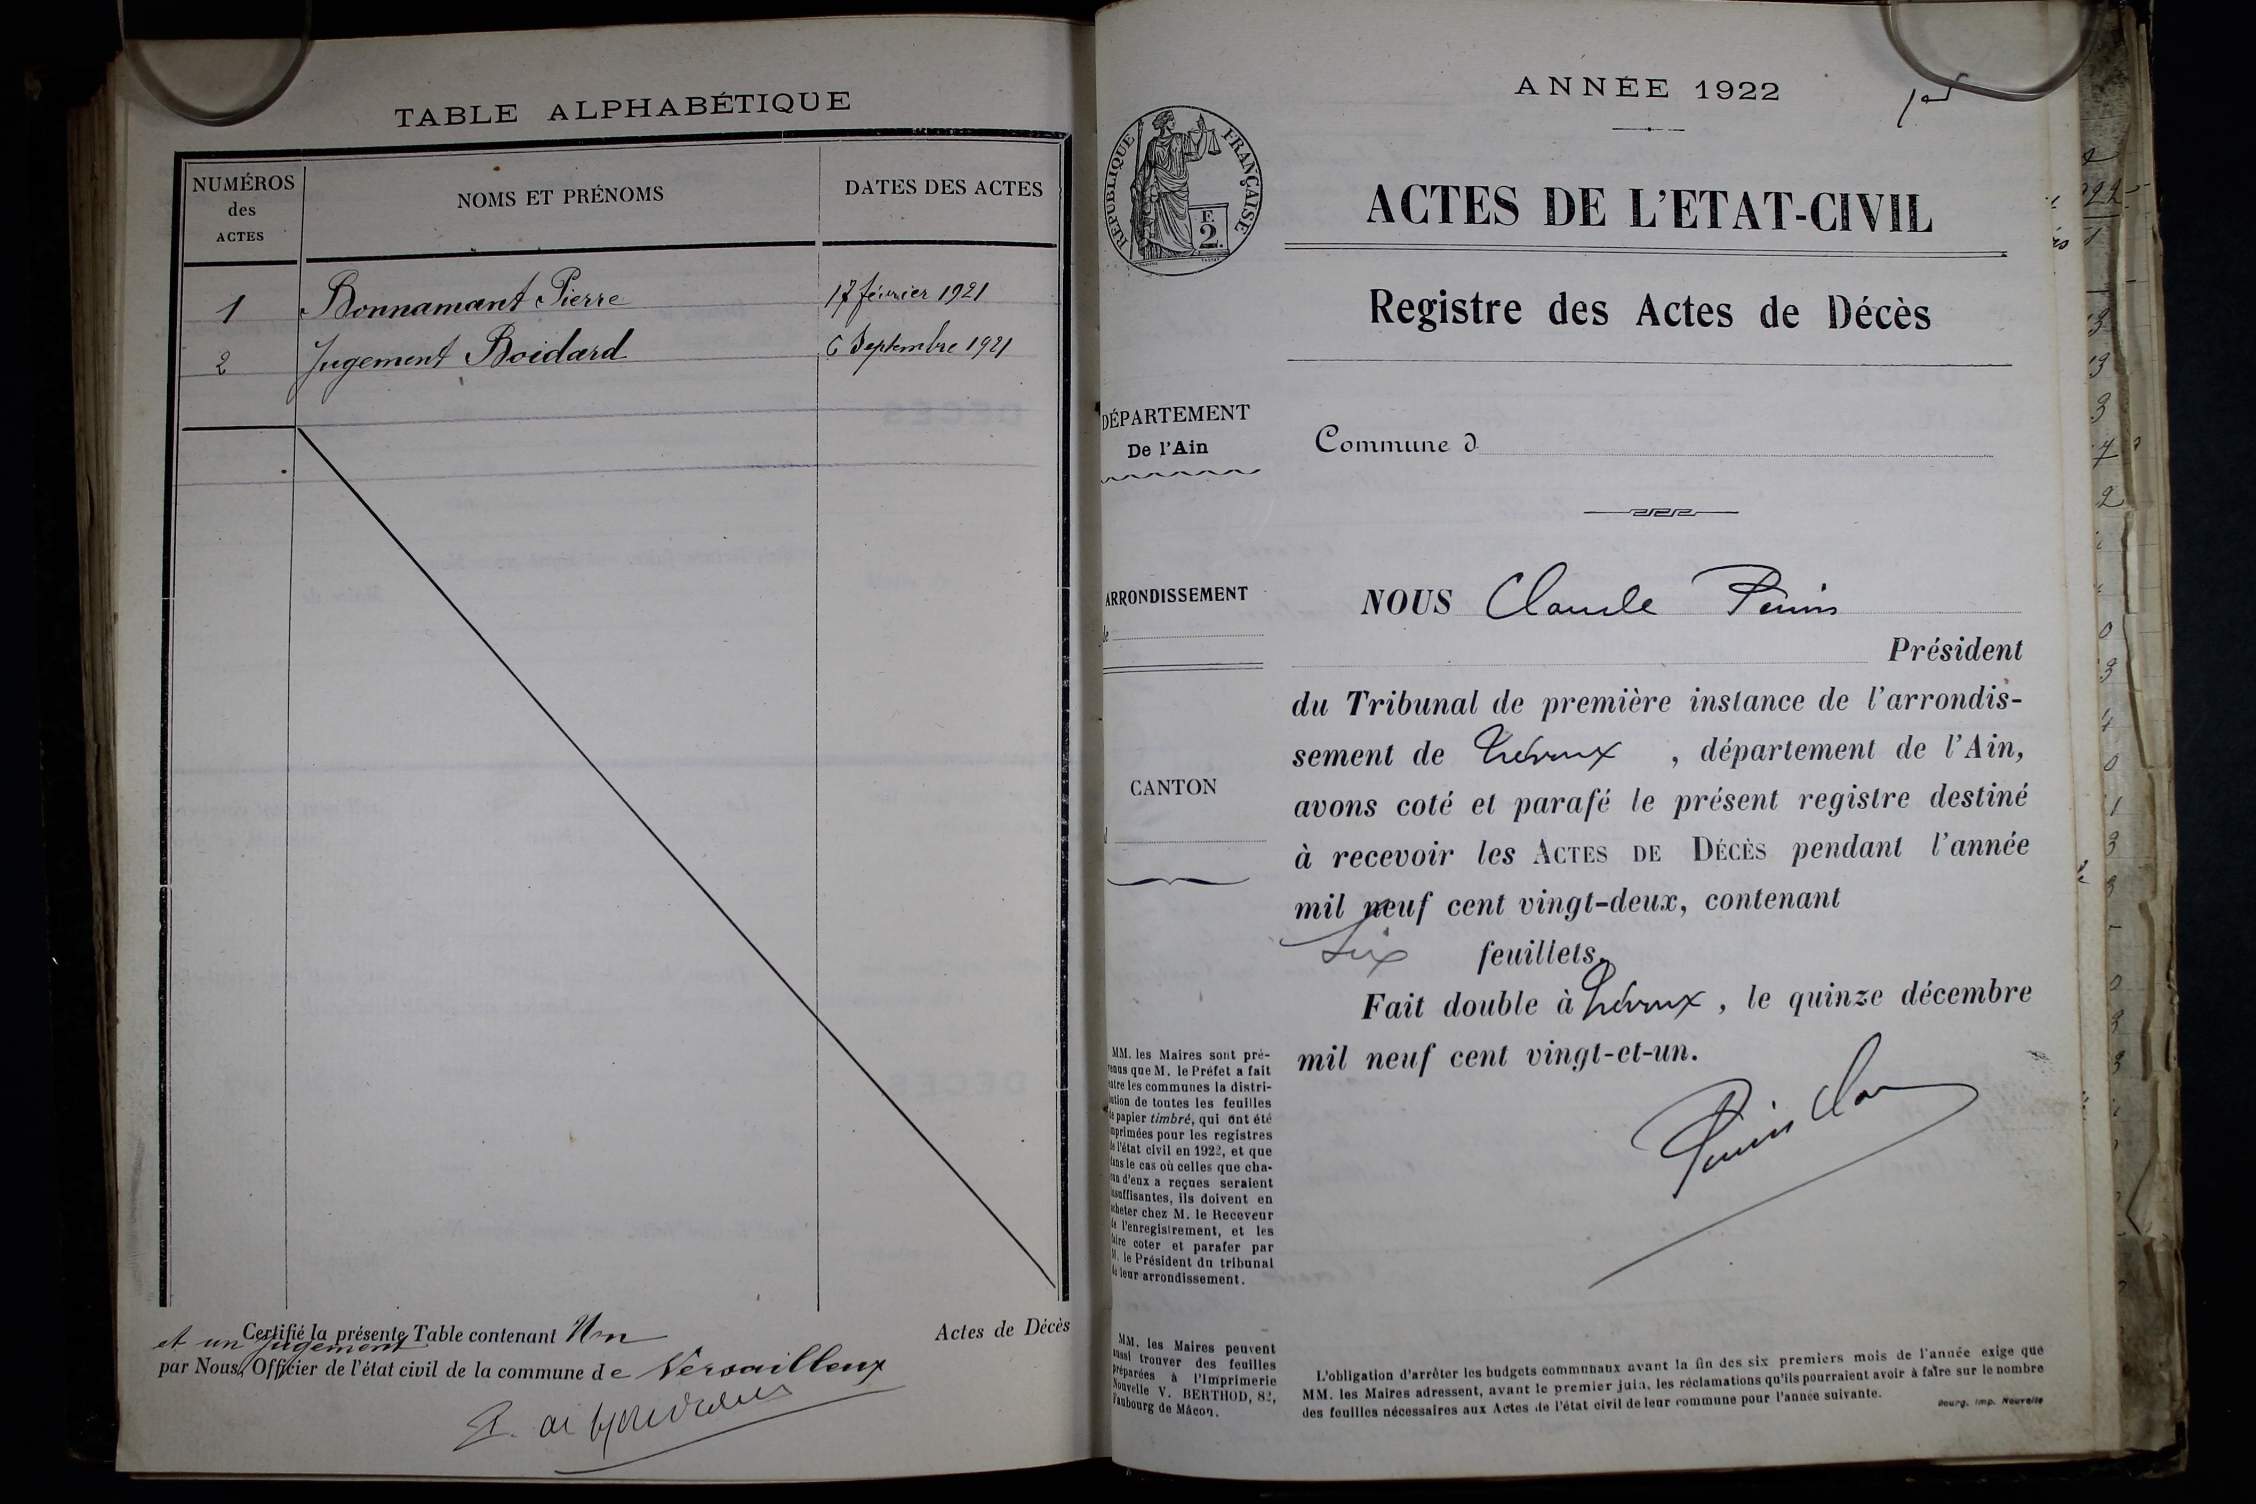 TABLE ALPHABÉTIQUE
NUMÉROS
des
ACTES
NOMS ET PRÉNOMS
DATES DES ACTES
1 Bonnamant Pierre 17 février 1921
2 Jugement Boidard 6 Septembre 1921
Certifié la présente Table contenant Un Actes de Décès
et un jugement
par Nous, Officier de l'état civil de la commune de Versailleux
ANNÉE 1922
RÉPUBLIQUE FRANÇAISE
2
ACTES DE L'ETAT-CIVIL
Registre des Actes de Décès
DÉPARTEMENT
De l'Ain
Commune d
ARRONDISSEMENT
de
CANTON
d
NOUS Claude
Président
du Tribunal de première instance de l'arrondis-
sement de Trévoux , département de l'Ain,
avons coté et parafé le présent registre destiné
à recevoir les ACTES DE DÉCÈS pendant l'année
mil neuf cent vingt-deux, contenant
Six feuillets.
Fait double à Trévoux, le quinze décembre
mil neuf cent vingt-et-un.
MM. les Maires sont pré-
venus que M. le Préfet a fait
entre les communes la distri-
bution de toutes les feuilles
de papier timbré, qui ont été
imprimées pour les registres
de l'état civil en 1922, et que
dans le cas où celles que cha-
cun d'eux a reçues seraient
insuffisantes, ils doivent en
acheter chez M. le Receveur
de l'enregistrement, et les
faire coter et parafer par
M. le Président du tribunal
de leur arrondissement.
MM. les Maires peuvent
aussi trouver des feuilles
préparées à l'Imprimerie
Nouvelle V. BERTHOD, 82,
Faubourg de Mâcon.
L'obligation d'arrêter les budgets communaux avant la fin des six premiers mois de l'année exige que
MM. les Maires adressent, avant le premier juin, les réclamations qu'ils pourraient avoir à faire sur le nombre
des feuilles nécessaires aux Actes de l'état civil de leur commune pour l'année suivante.
Bourg. Imp. Nouvelle